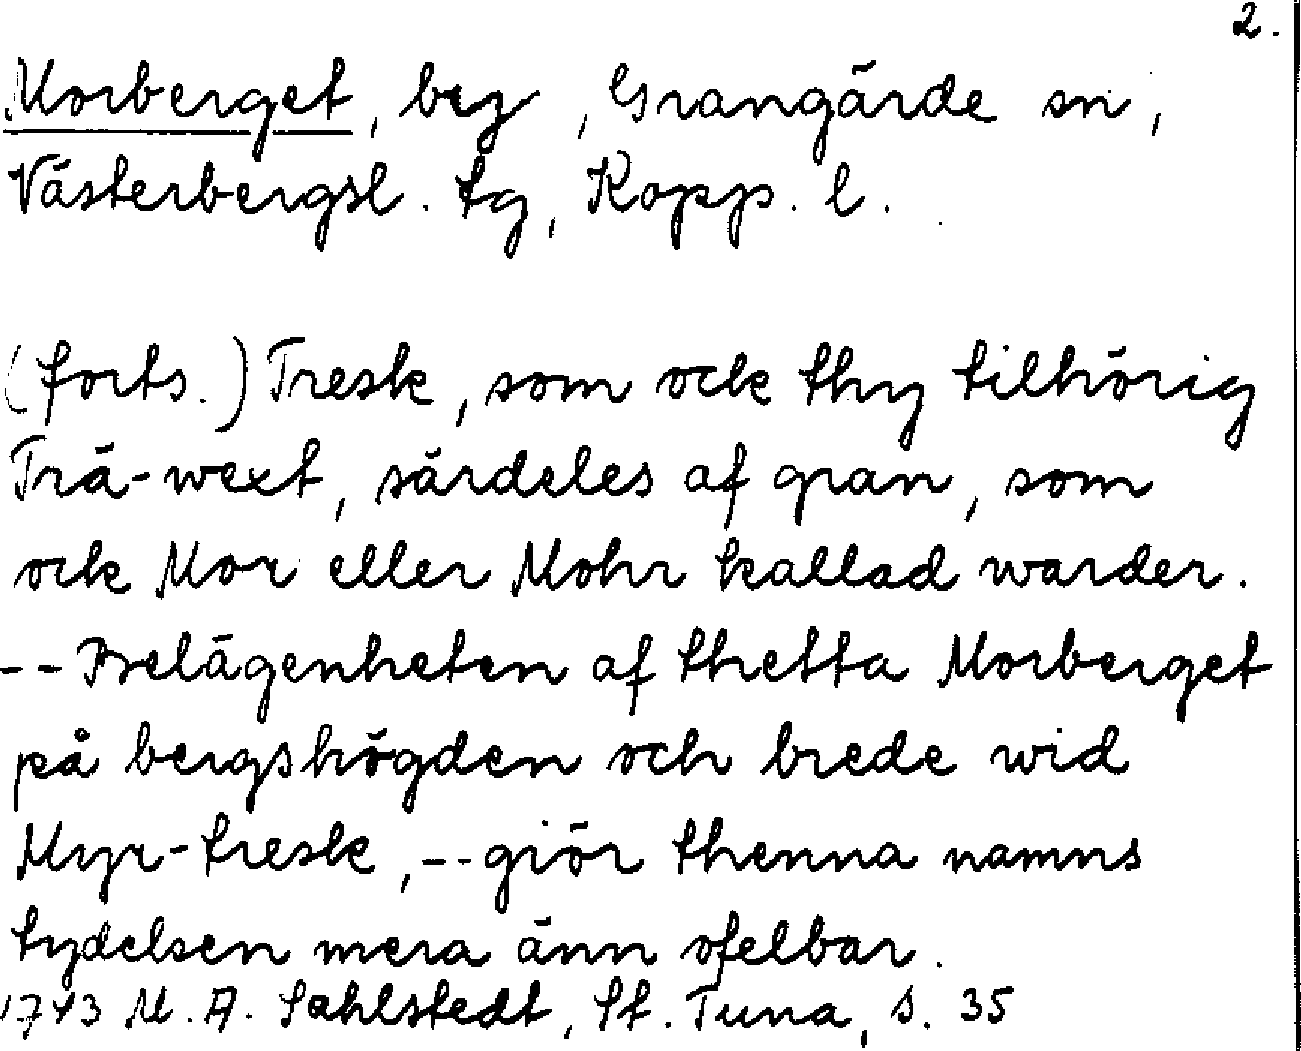 2.
Morberget, by, Grangärde sn,
Västerbergsl. tg, Kopp. l.
(forts.) Tresk, som ock thy tilhörig
Trä-wext, särdeles af gran, som
ock Mor eller Mohr kallad warder.
-- Belägenheten af thetta Morberget
på bergshögden och brede wid
Myr-tresk, -- giör thenna namns
tydelsen mera änn ofelbar.
1743 M. A. Sahlstedt, St. Tuna, s. 35